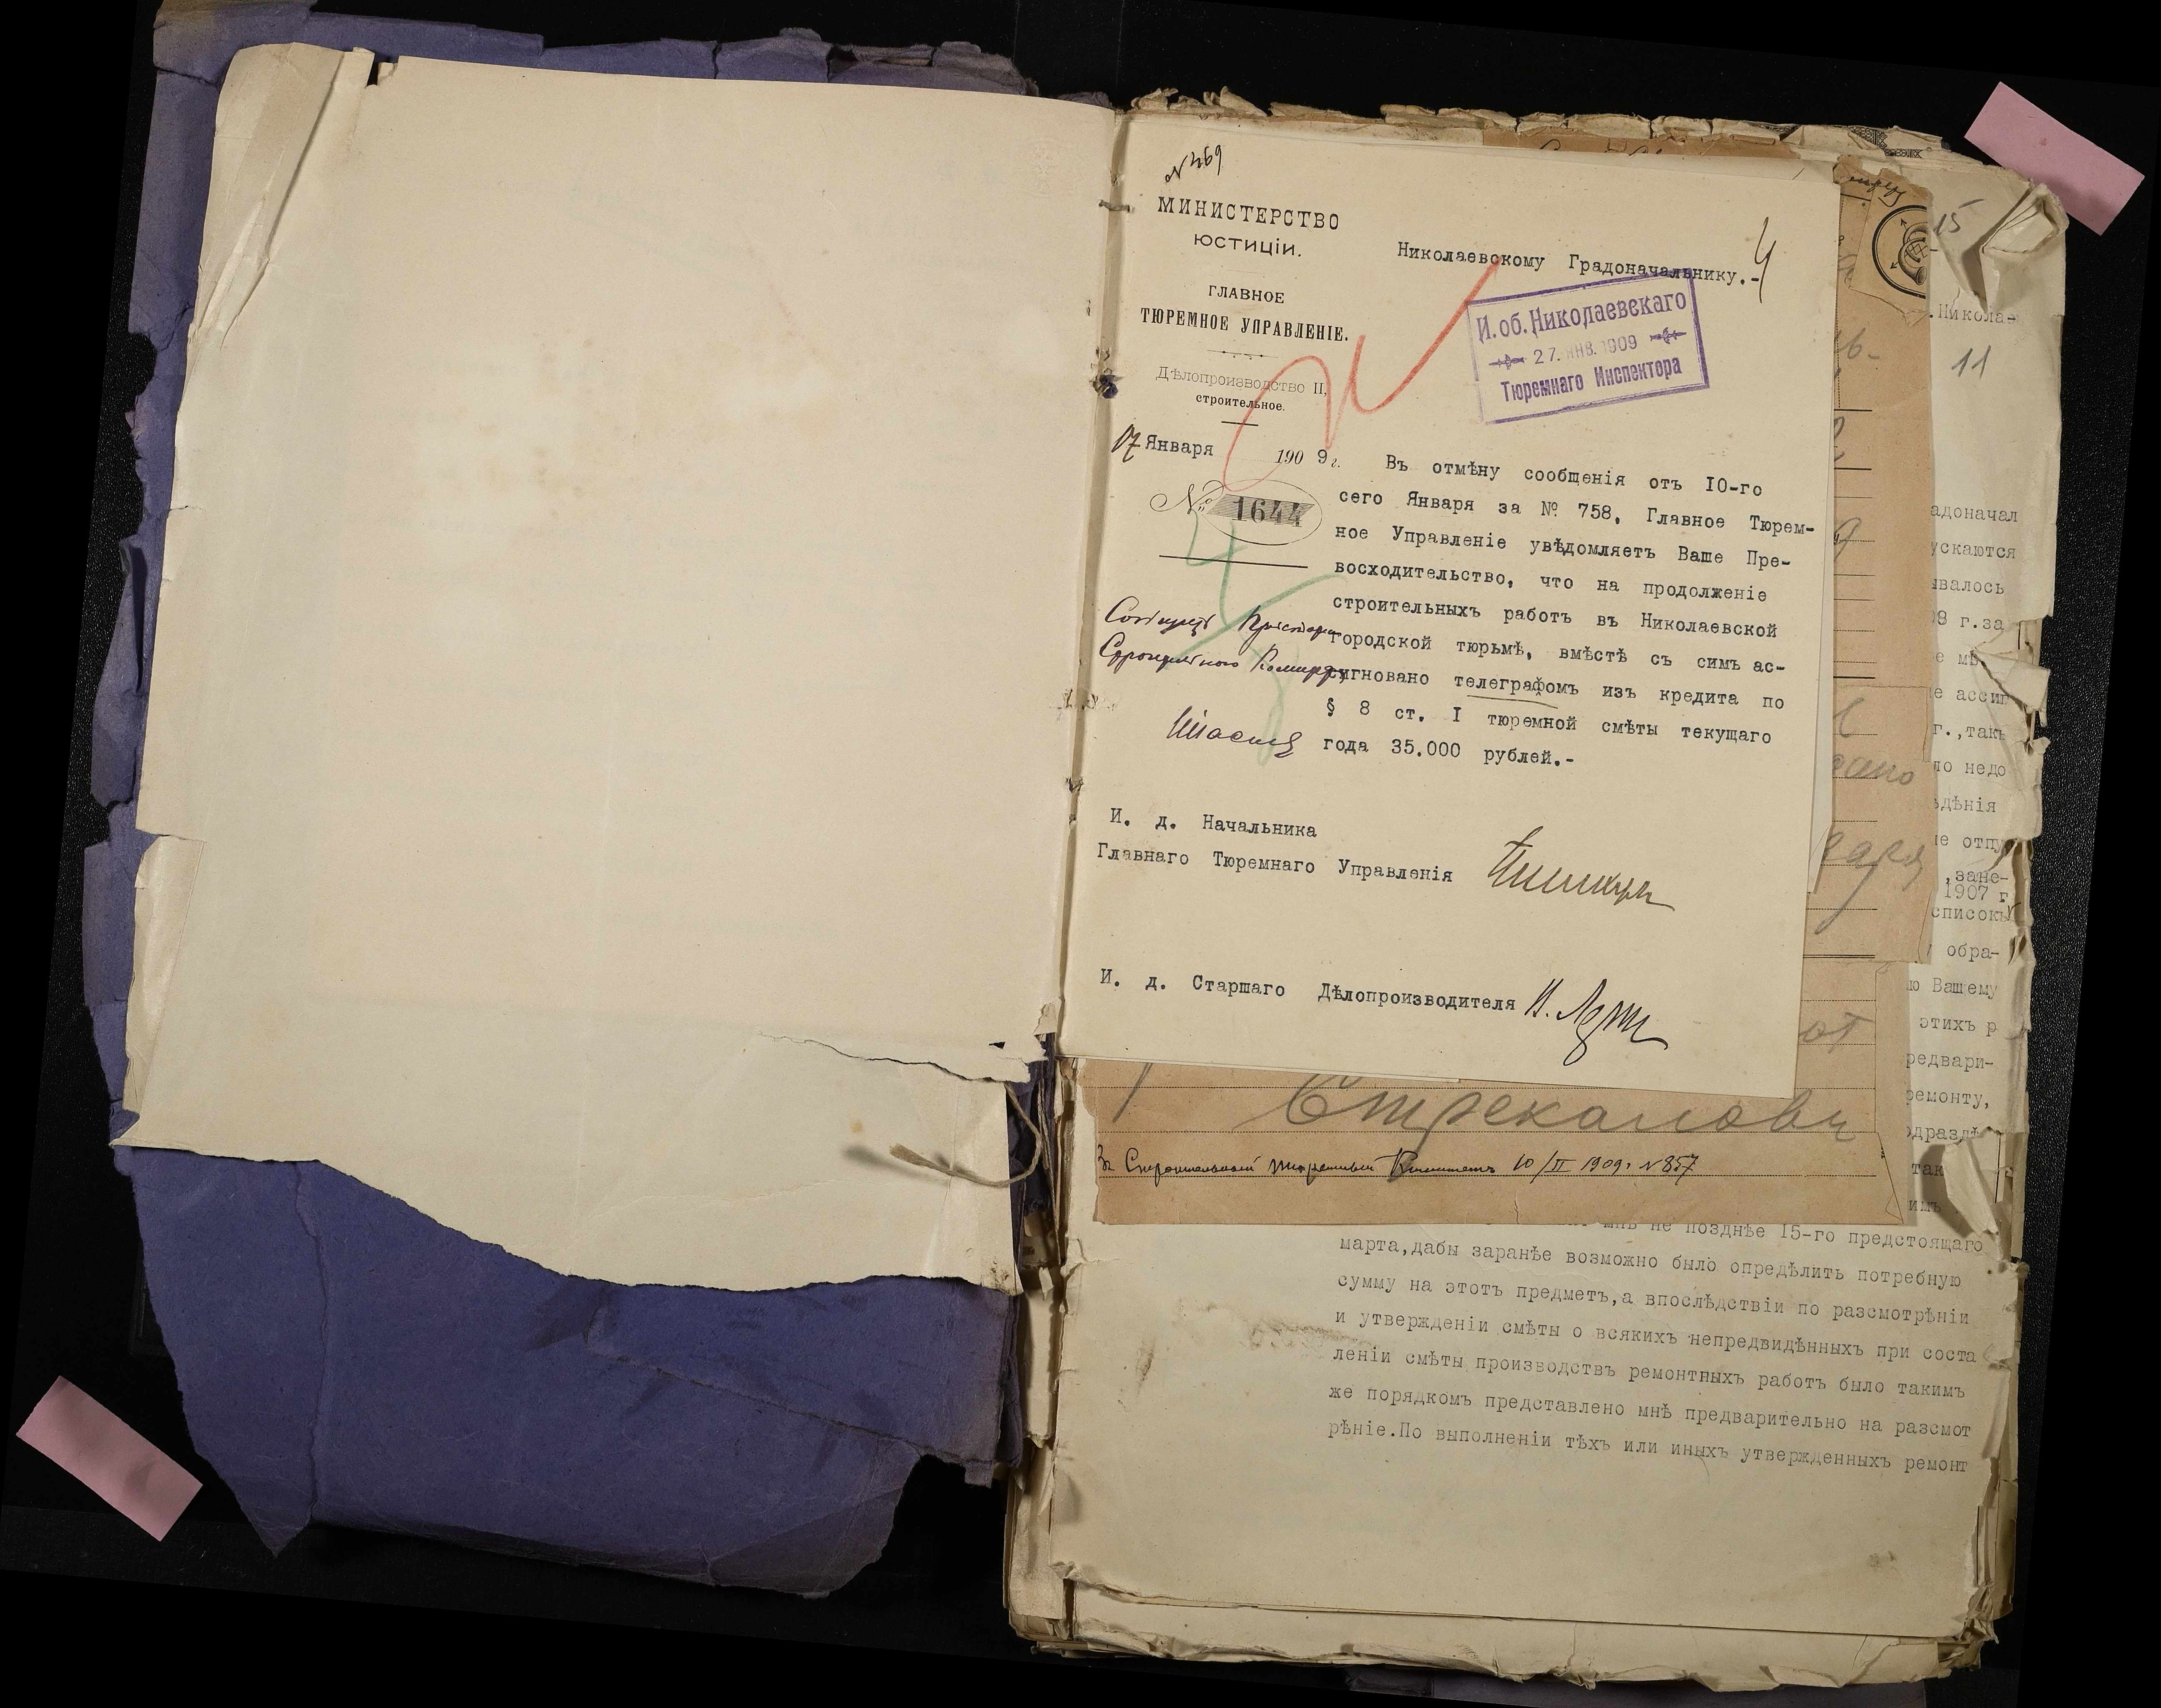 № 369
МИНИСТЕРСТВО
ЮСТИЦІИ.
ГЛАВНОЕ
ТЮРЕМНОЕ УПРАВЛЕНІЕ.
Дѣлопроизводство II,
строительное.
17 Января 1909 г.
№ 1644
Николаевскому Градоначальнику.-
4
И. об. Николаевскаго
27. ЯНВ. 1909
Тюремнаго Инспектора
Въ отмѣну сообщенія отъ 10-го
сего Января за № 758, Главное Тюрем-
ное Управленіе увѣдомляетъ Ваше Пре-
восходительство, что на продолженіе
строительныхъ работъ въ Николаевской
городской тюрьмѣ, вмѣстѣ съ симъ ас-
сигновано телеграфомъ изъ кредита по
§ 8 ст. I тюремной смѣты текущаго
года 35.000 рублей.-
И. д. Начальника
Главнаго Тюремнаго Управленія
И. д. Старшаго Дѣлопроизводителя
15
.Никола-
11
адоначал
ускаются
ывалось
8 г.за
е ассиг
г.,такъ
ло недо
ѣдѣнія
е отпу
,зане-
1907 г
списокъ
обра-
ю Вашему
этихъ р
редвари-
ремонту,
одраздѣ
так
имъ
Стрекаловъ
Въ Строительный тюремный Комитетъ 10/II 1909 г. № 857
мнѣ не позднѣе 15-го предстоящаго
марта,дабы заранѣе возможно было опредѣлить потребную
сумму на этотъ предметъ,а впослѣдствіи по разсмотрѣніи
и утвержденіи смѣты о всякихъ непредвидѣнныхъ при соста
леніи смѣты производствъ ремонтныхъ работъ было такимъ
же порядкомъ представлено мнѣ предварительно на разсмот
рѣніе.По выполненіи тѣхъ или иныхъ утвержденныхъ ремонт